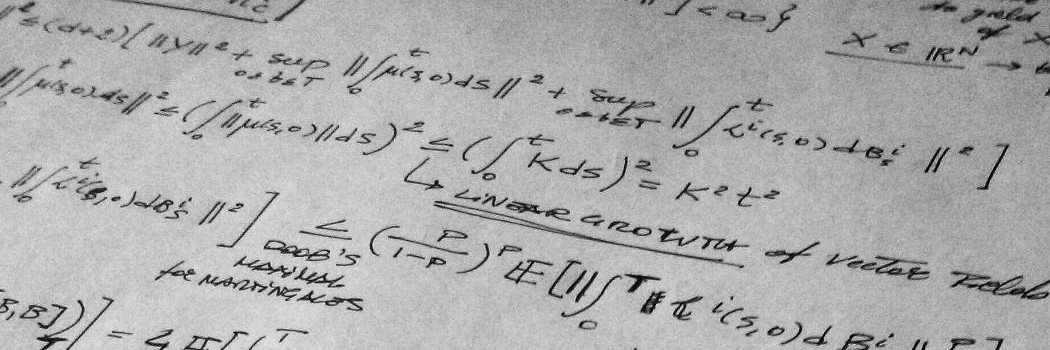 ‖² ≤ (d+2)[‖Y‖² + sup_{0≤t≤T} ‖∫₀ᵗ μ(s,0)ds‖² + sup_{0≤t≤T} ‖∫₀ᵗ σⁱ(s,0)dBₛⁱ‖²]
] < ∞}
to yield
of X
X ∈ ℝᴺ →
‖∫₀ᵗ μ(s,0)ds‖² ≤ (∫₀ᵗ ‖μ(s,0)‖ds)² ≤ (∫₀ᵗ K ds)² = K²t²
↳ LINEAR GROWTH of vector Fields
‖∫₀ᵗ σⁱ(s,0)dBₛⁱ‖²] ≤ (p/(1-p))ᵖ 𝔼[‖∫₀ᵀ σⁱ(s,0)dBⁱ‖ᵖ]
DOOB'S
MAXIMAL
for MARTINGALES
B,B])] = 4 𝔼[(∫ᵀ